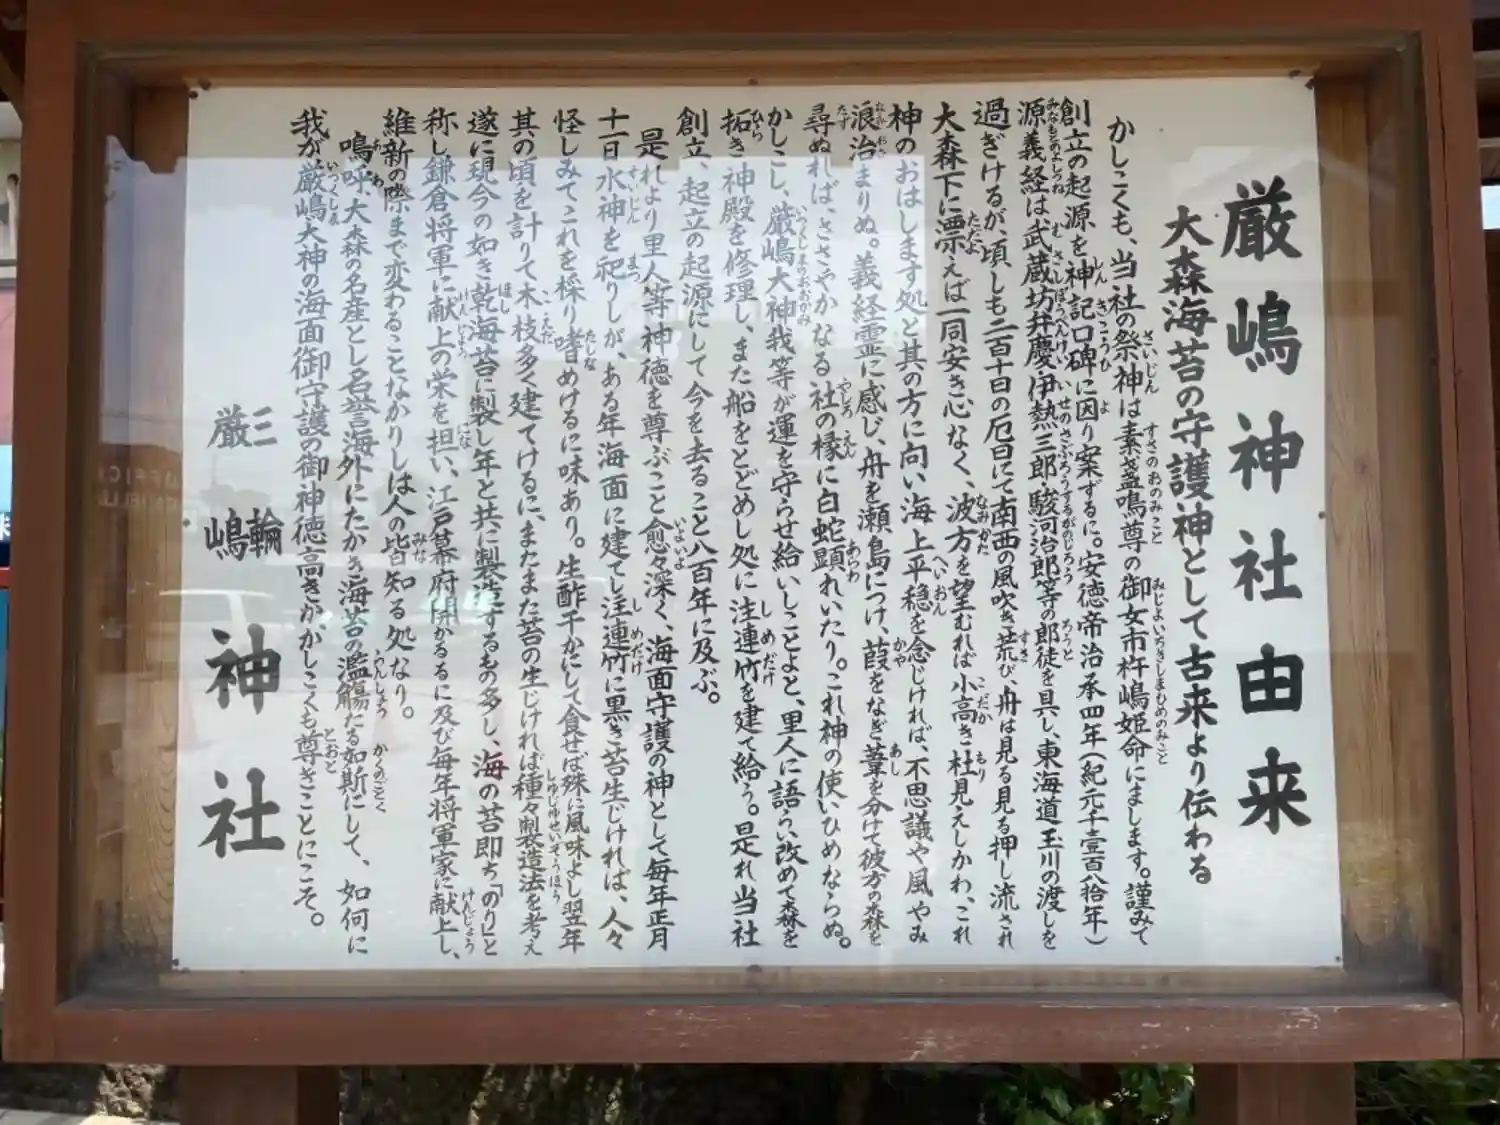 厳嶋神社由来
大森海苔の守護神として古来より伝わる
かしこくも、当社の祭神は素盞鳴尊の御女市杵嶋姫命にまします。謹みて
創立の起源を神記口碑に因り案ずるに。安徳帝治承四年(紀元千壹百八拾年)
源義経は、武蔵坊弁慶・伊熱三郎・駿河治郎等の郎徒を具し、東海道玉川の渡しを
過ぎけるが、頃しも二百十日の厄日にて南西の風吹き荒び、舟は見る見る押し流され
大森下に漂えば一同安き心なく、波方を望むれば小高き杜見えしかわ、これ
神のおはします処と其の方に向い海上平穏を念じければ、不思議や風やみ
浪治まりぬ。義経霊に感じ、舟を瀬島につけ、葭をなぎ葦を分けて彼方の森を
尋ぬれば、ささやかなる社の椽に白蛇顕れいたり。これ神の使いひめならぬ。
かしこし、厳嶋大神我等が運を守らせ給いしことよと、里人に語らい改めて森を
拓き神殿を修理し、また船をとどめし処に注連竹を建て給う。是れ当社
創立、起立の起源にして今を去ること八百年に及ぶ。
是れより里人等神徳を尊ぶこと愈々深く、海面守護の神として毎年正月
十一日水神を祀りしが、ある年海面に建てし注連竹に黒き苔生じければ、人々
怪しみてこれを採り嗜めけるに味あり。生酢干かにして食せば殊に風味よし翌年
其の頃を計りて木枝多く建てけるに、またまた苔の生じければ種々製造法を考え
遂に現今の如き乾海苔に製し年と共に製造するもの多し、海の苔即ち「のり」と
称し鎌倉将軍に献上の栄を担い、江戸幕府開かるるに及び毎年将軍家に献上し、
維新の際まで変わることなかりしは人の皆知る処なり。
鳴呼大森の名産とし名誉海外にたかき海苔の濫觴たる如斯にして、如何に
我が厳嶋大神の海面御守護の御神徳高きかかしこくも尊きことにこそ。
三輪
厳嶋神社